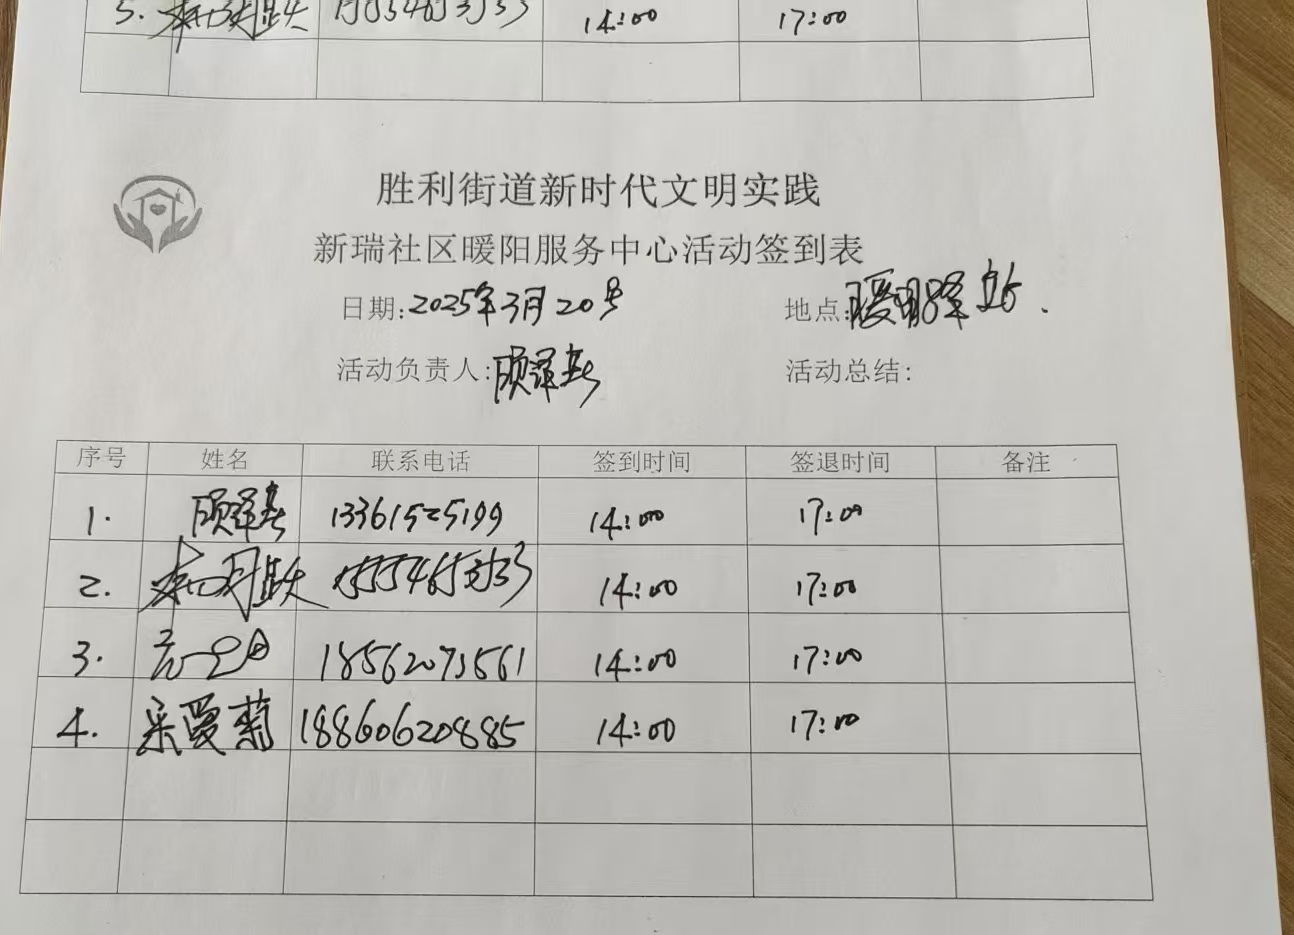 5. 14:00 17:00
胜利街道新时代文明实践
新瑞社区暖阳服务中心活动签到表
日期:2025年3月20号 地点:暖阳驿站.
活动负责人:顾泽春 活动总结:
序号 姓名 联系电话 签到时间 签退时间 备注
1. 顾泽春 13361525199 14:00 17:00
2. 14:00 17:00
3. 18562073561 14:00 17:00
4. 采爱菊 18860620885 14:00 17:00